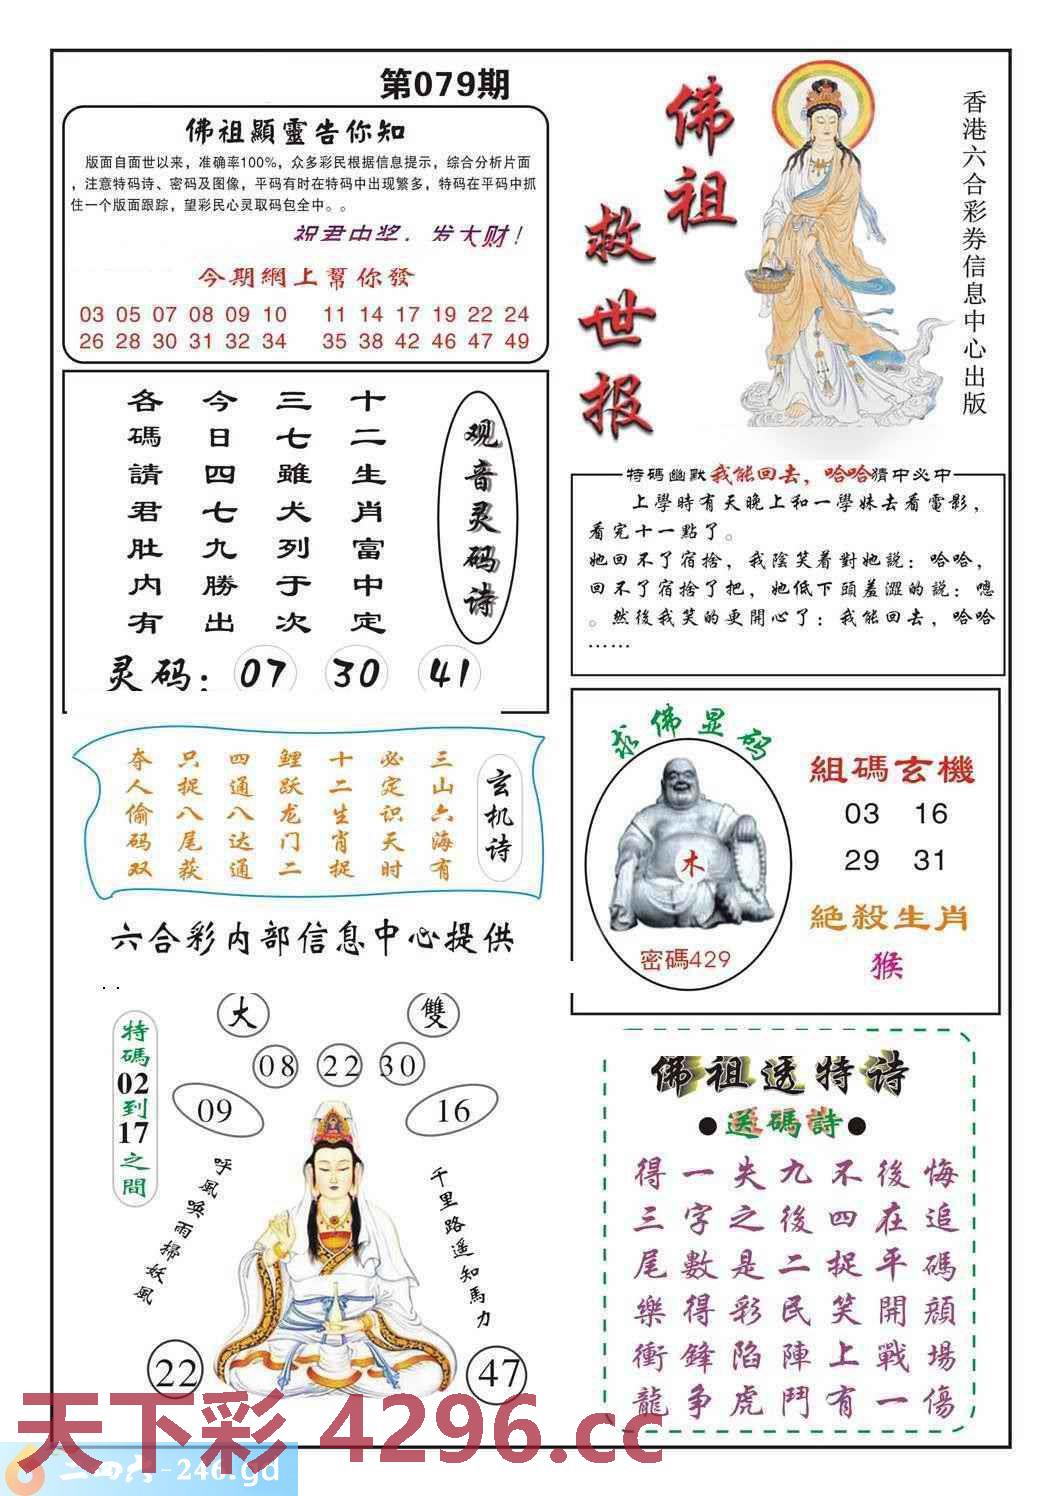 第079期
佛祖顯靈告你知
版面自面世以来，准确率100%，众多彩民根据信息提示，综合分析片面
，注意特码诗、密码及图像，平码有时在特码中出现繁多，特码在平码中抓
住一个版面跟踪，望彩民心灵取码包全中。。
祝君中奖，发大财！
今期網上幫你發
03 05 07 08 09 10 11 14 17 19 22 24
26 28 30 31 32 34 35 38 42 46 47 49
佛祖
救世报
香港六合彩券信息中心出版
观音灵码诗
十二生肖富中定
三七雖犬列于次
今日四七九勝出
各碼請君肚内有
灵码：07 30 41
特码幽默我能回去，哈哈猜中必中
上學時有天晚上和一學妹去看電影，
看完十一點了。
她回不了宿捨，我陰笑着對她説：哈哈，
回不了宿捨了把，她低下頭羞澀的説：嗯
。然後我笑的更開心了：我能回去，哈哈
……
玄机诗
三山六海有
必定识天时
十二生肖捉
鲤跃龙门二
四通八达通
只捉八尾获
夺人偷码双
求佛显码
木
密碼429
組碼玄機
03 16
29 31
絶殺生肖
猴
六合彩内部信息中心提供
大
雙
08 22 30
09
16
特碼02到17之間
呼風唤雨掃妖風
千里路遥知馬力
22
47
佛祖透特诗
●送碼詩●
得一失九不後悔
三字之後四在追
尾數是二捉平碼
樂得彩民笑開顔
衝鋒陷陣上戰場
龍争虎鬥有一傷
天下彩 4296.cc
二四六-246.gd